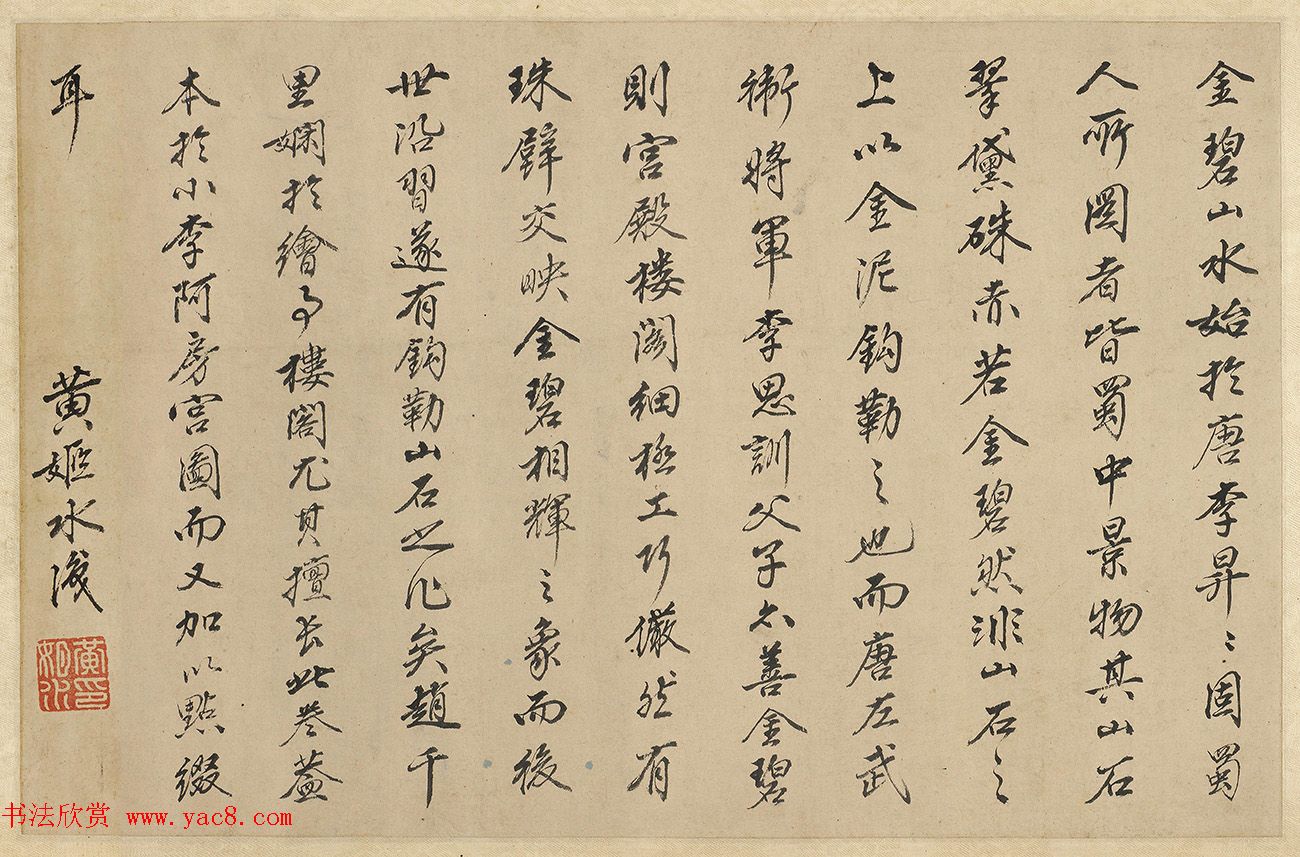 金碧山水始於唐李昇〻固蜀
人所圖者皆蜀中景物其山石
翠黛硃赤若金碧然非山石之
上以金泥鈎勒之也而唐左武
衛將軍李思訓父子亦善金碧
則宮殿楼閣細極工巧儼然有
珠璧交映金碧相輝之象而後
世沿習遂有鈎勒山石之作矣趙千
里嫻於繪事樓閣尤其擅長此卷蓋
本於小李阿房宮圖而又加以點綴
耳
黄姬水識
黃姬水印
书法欣赏 www.yac8.com